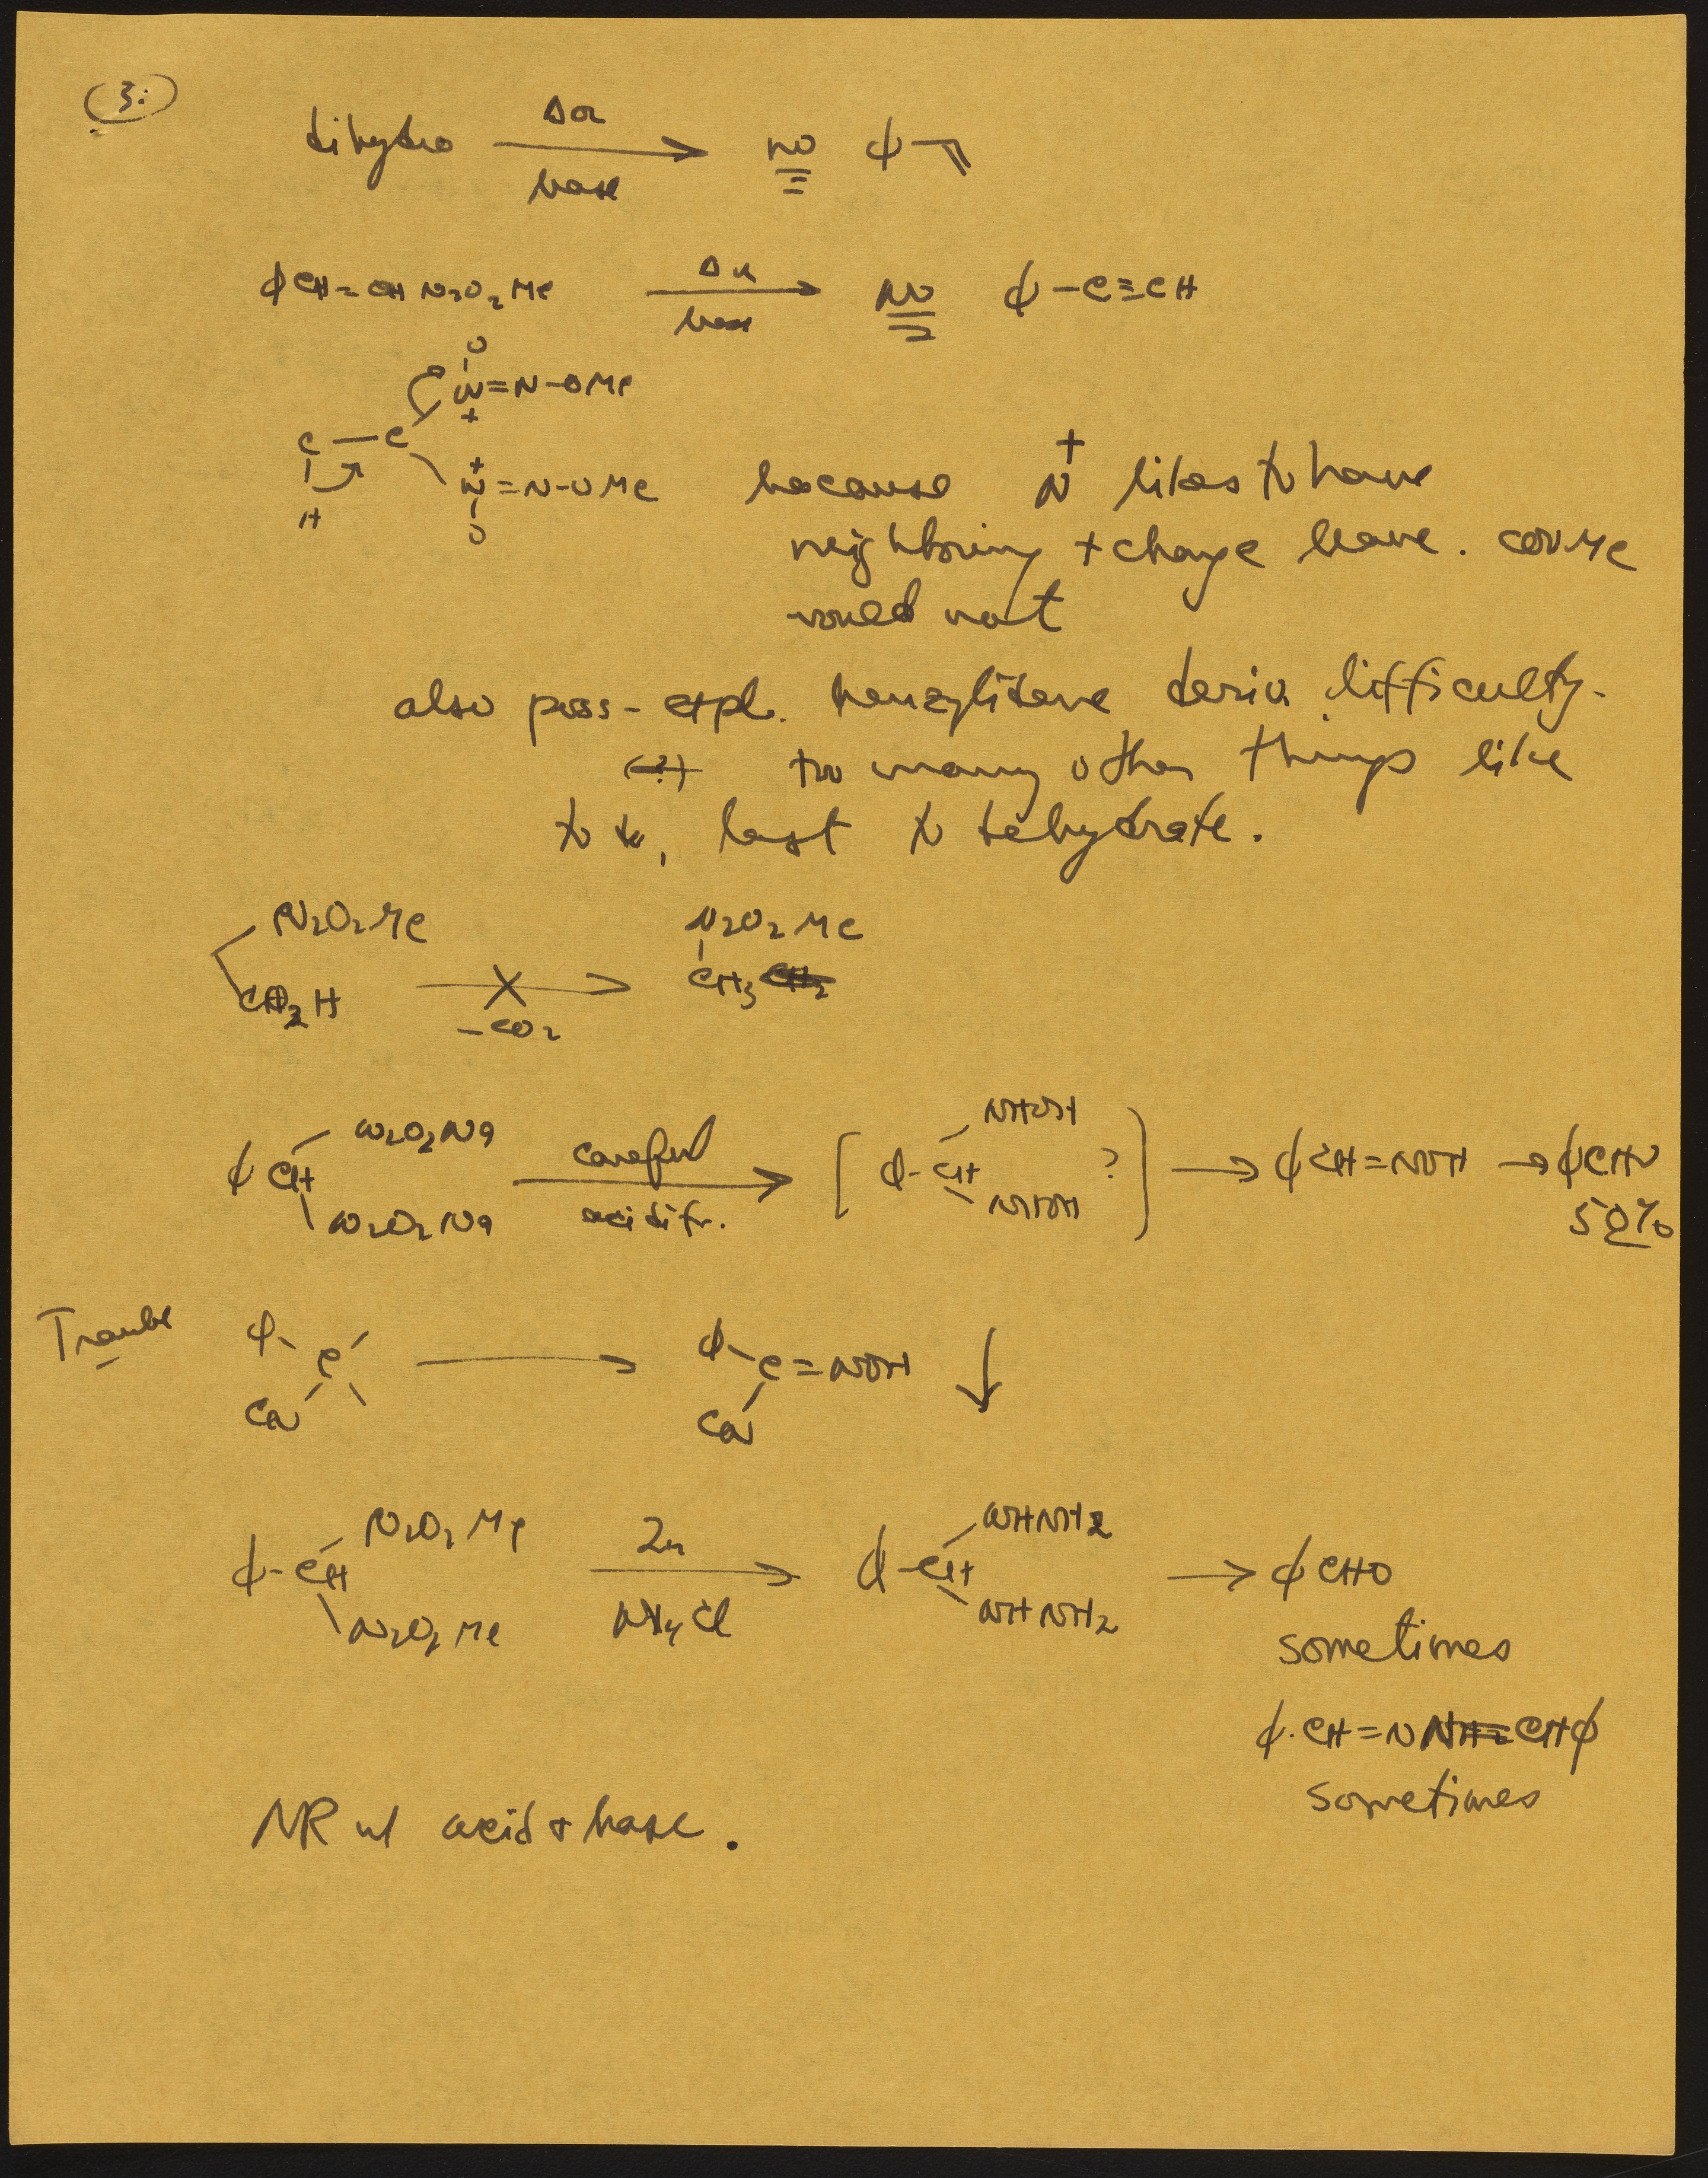 3.
dihydro Δ or base → no φ
φCH=CH N2O2Me Δ or base → no φ-C≡CH
O
N=N-OMe
+
C-C
H
+
N=N-OMe
O
because N+ likes to have
neighboring + charge leave. COOMe
would not
also poss. expl. benzylidene deriv difficulty.
(-?+) too many other things like
to le, last to dehydrate.
N2O2Me
CO2H
X → -CO2
N2O2Me
CH3 CH2
φCH N2O2Na N2O2Na careful acidif. → [φ-CH NHOH NHOH ?] → φCH=NOH → φCHO
50%
Traube φ C Ca → φ C=NOH Ca ↓
φ-CH N2O2Me N2O2Me Zn NH4Cl → φ-CH NHNH2 NHNH2 → φCHO
sometimes
φ.CH=N NH2=CHφ
sometimes
NR w/ acid & base.